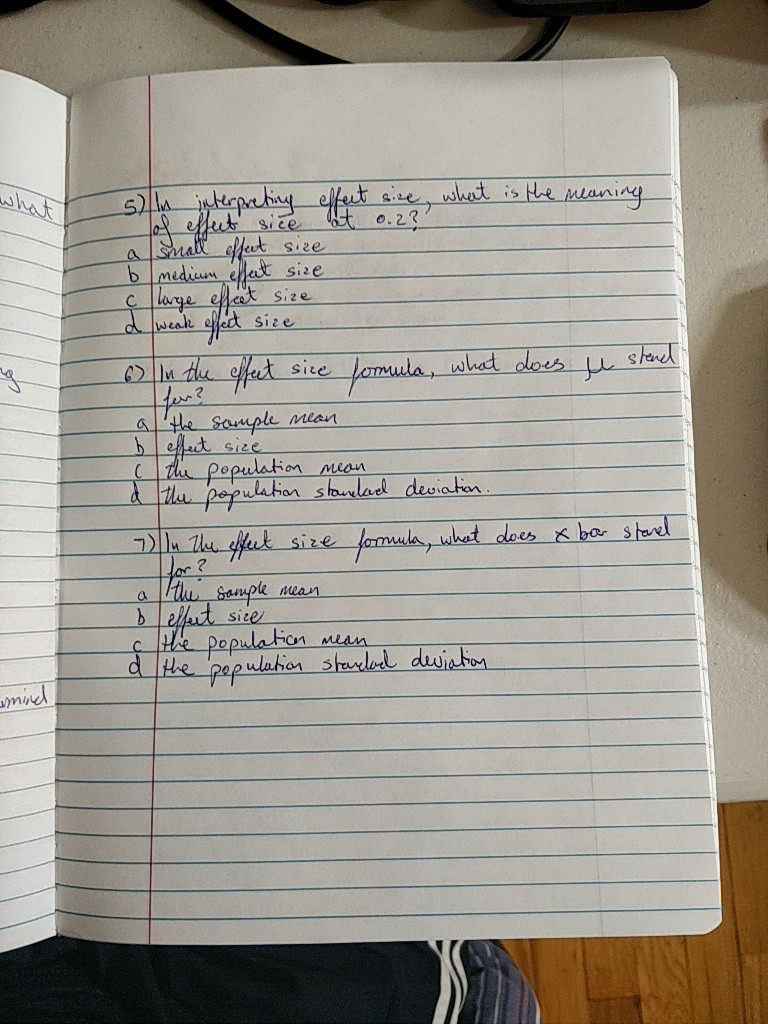 what
5) In interpreting effect size, what is the meaning
of effect size at 0.2?
a small effect size
b medium effect size
c large effect size
d weak effect size
6) In the effect size formula, what does μ stand
for?
a the sample mean
b effect size
c the population mean
d the population standard deviation.
7) In the effect size formula, what does x bar stand
for?
a the sample mean
b effect size
c the population mean
d the population standard deviation